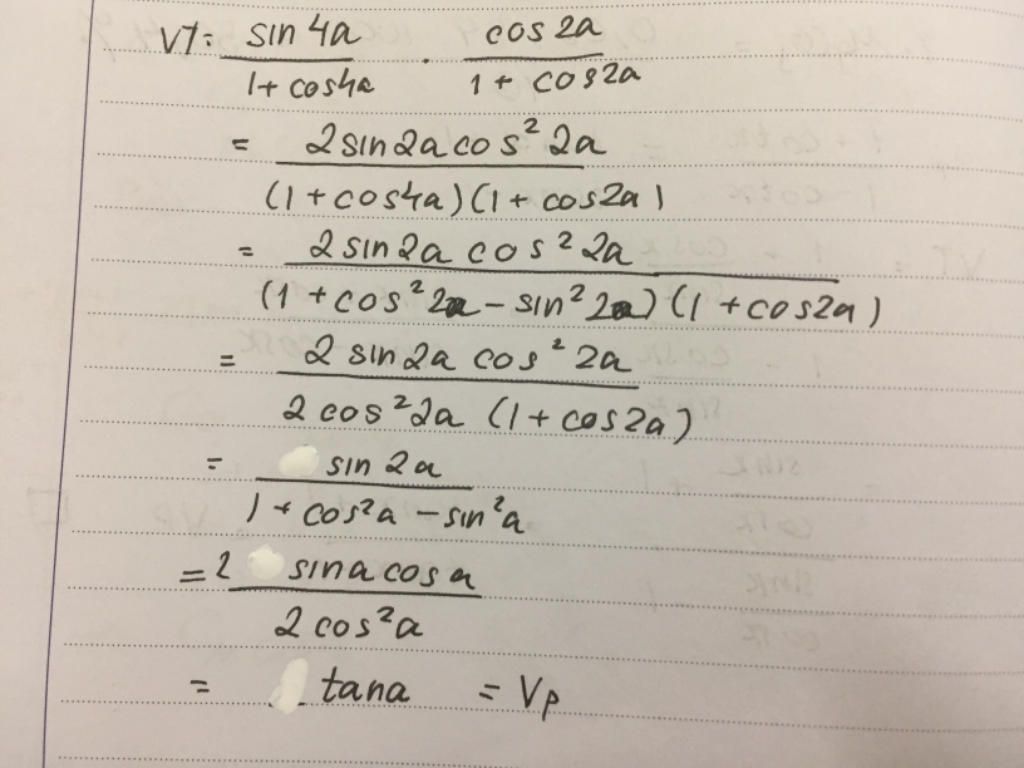 VT = sin 4a / 1 + cos4a · cos 2a / 1 + cos2a
= 2 sin 2a cos² 2a / (1 + cos4a) (1 + cos2a)
= 2 sin 2a cos² 2a / (1 + cos² 2a − sin² 2a) (1 + cos2a)
= 2 sin 2a cos² 2a / 2 cos² 2a (1 + cos2a)
= sin 2a / 1 + cos²a − sin²a
= 2 sina cosa / 2 cos²a
= tana = Vp